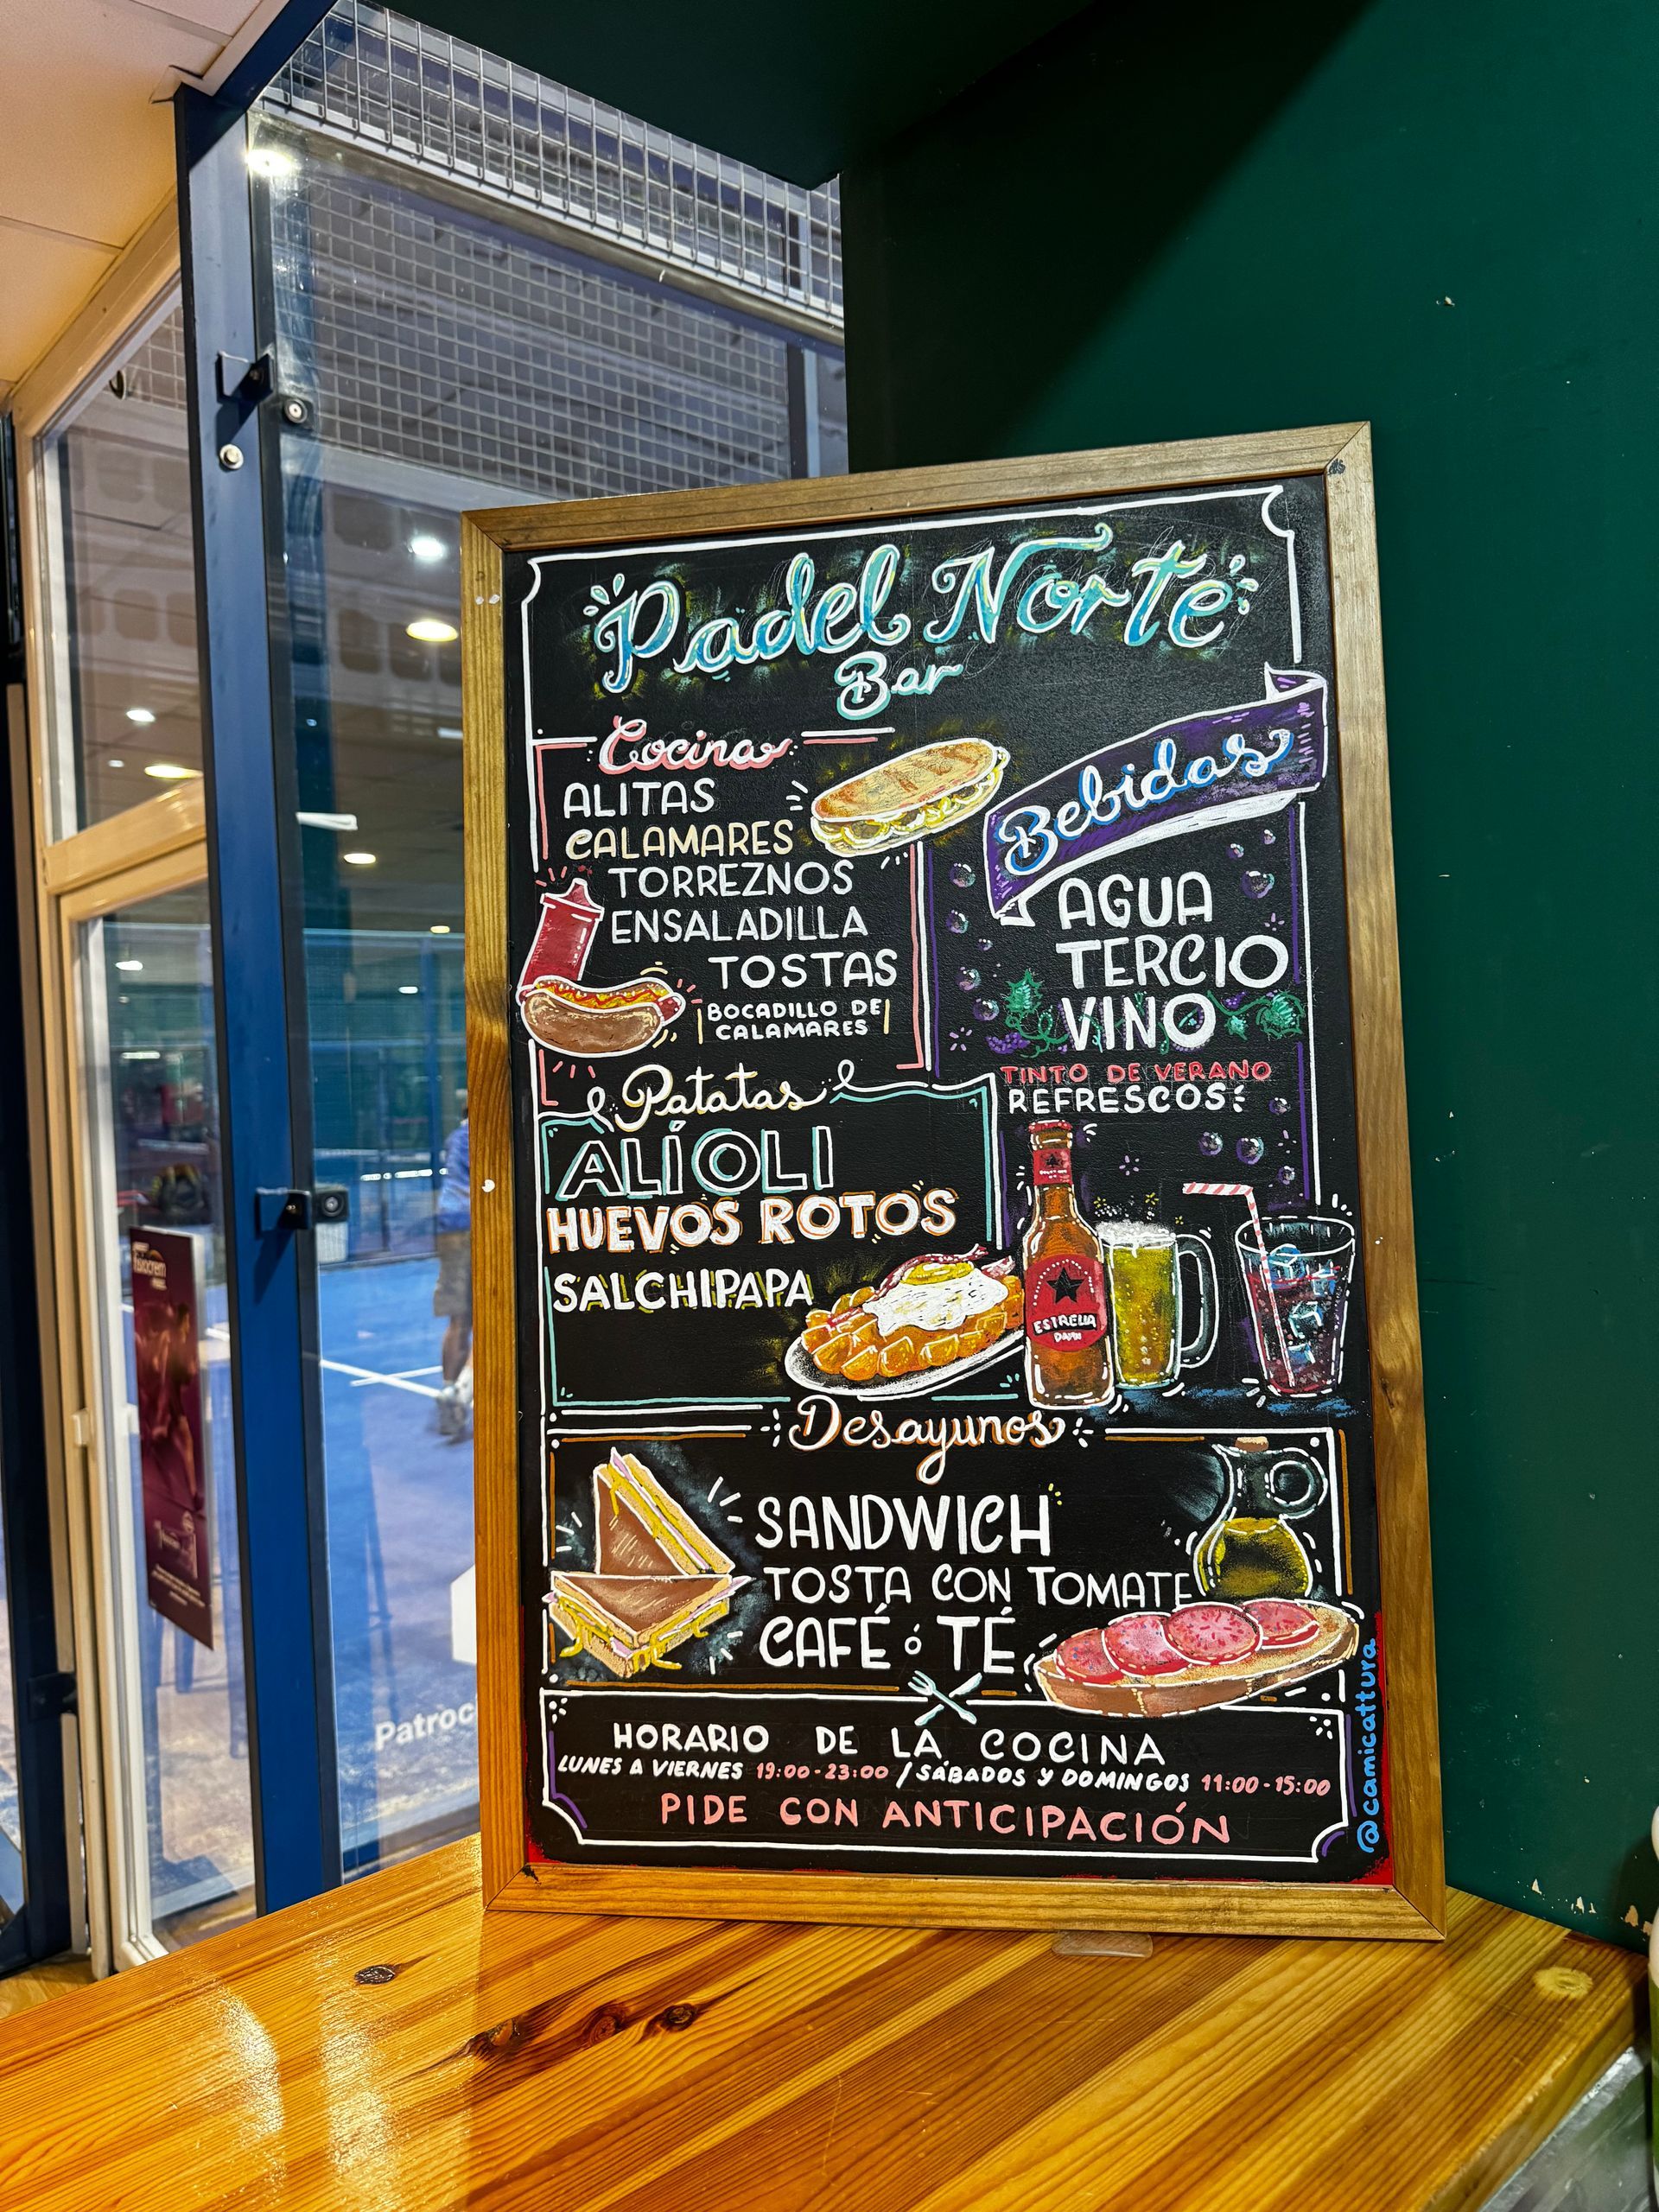 Padel Norte
Bar
Cocina
ALITAS
CALAMARES
TORREZNOS
ENSALADILLA
TOSTAS
BOCADILLO DE
CALAMARES
Bebidas
AGUA
TERCIO
VINO
TINTO DE VERANO
REFRESCOS
Patatas
ALÍOLI
HUEVOS ROTOS
SALCHIPAPA
ESTRELLA
DAMM
Desayunos
SANDWICH
TOSTA CON TOMATE
CAFÉ ó TÉ
HORARIO DE LA COCINA
LUNES A VIERNES 19:00-23:00 / SÁBADOS Y DOMINGOS 11:00-15:00
PIDE CON ANTICIPACIÓN
@camicattura
Patroc